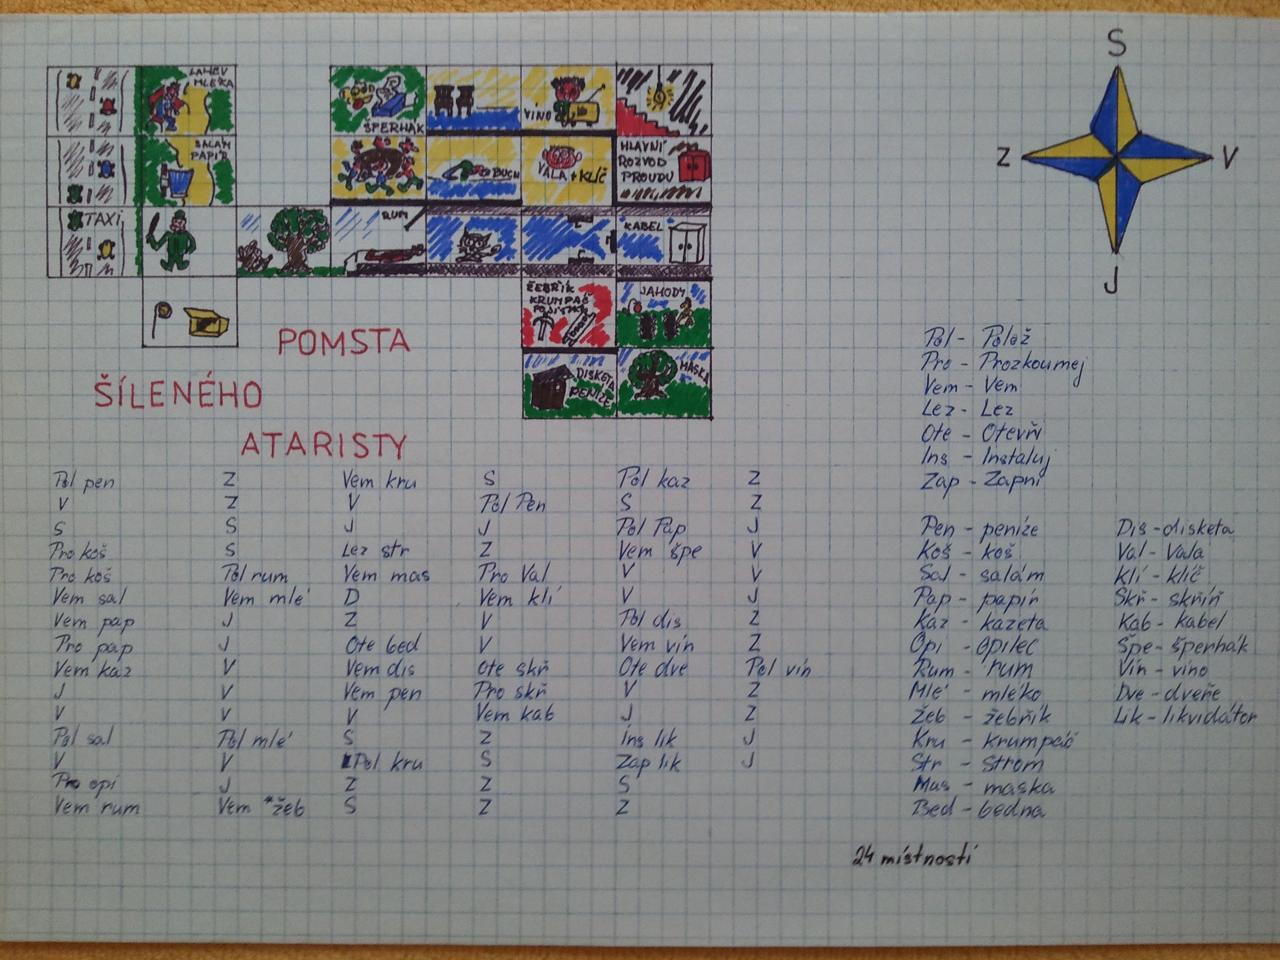 S
LAHEV
MLÉKA
ŠPERHÁK
VÍNO
SALÁM
PAPÍR
BUCH
VALA + KLÍČ
HLAVNÍ
ROZVOD
PROUDU
Z
V
TAXI
RUM
KABEL
J
ŽEBŘÍK
KRUMPÁČ
JAHODY
DISKETA
PENÍZE
MASKA
POMSTA
ŠÍLENÉHO
ATARISTY
Pol pen
V
S
Pro koš
Pro koš
Vem sal
Vem pap
Pro pap
Vem kaz
J
V
Pol sal
V
Pro opi
Vem rum
Z
Z
S
S
Pol rum
Vem mlé
J
J
V
V
V
Pol mlé
V
J
Vem žeb
Vem kru
V
J
Lez str
Vem mas
D
Z
Ote bed
Vem dis
Vem pen
V
S
Pol kru
Z
S
S
Pol Pen
J
Z
Pro Val
Vem klí
V
V
Ote skř
Pro skř
Vem kab
Z
S
Z
Z
Pol kaz
S
Pol Pap
Vem špe
V
V
Pol dis
Vem vín
Ote dve
V
J
Ins lik
Zap lik
S
Z
Z
Z
J
V
V
J
Z
Z
Pol vín
Z
Z
J
J
Pol - Polož
Pro - Prozkoumej
Vem - Vem
Lez - Lez
Ote - Otevři
Ins - Instaluj
Zap - Zapni
Pen - peníze
Koš - koš
Sal - salám
Pap - papír
Kaz - kazeta
Opi - opilec
Rum - rum
Mlé - mléko
Žeb - žebřík
Kru - krumpáč
Str - strom
Mas - maska
Bed - bedna
Dis - disketa
Val - Vala
Klí - klíč
Skř - skříň
Kab - kabel
Špe - šperhák
Vín - víno
Dve - dveře
Lik - likvidátor
24 místností